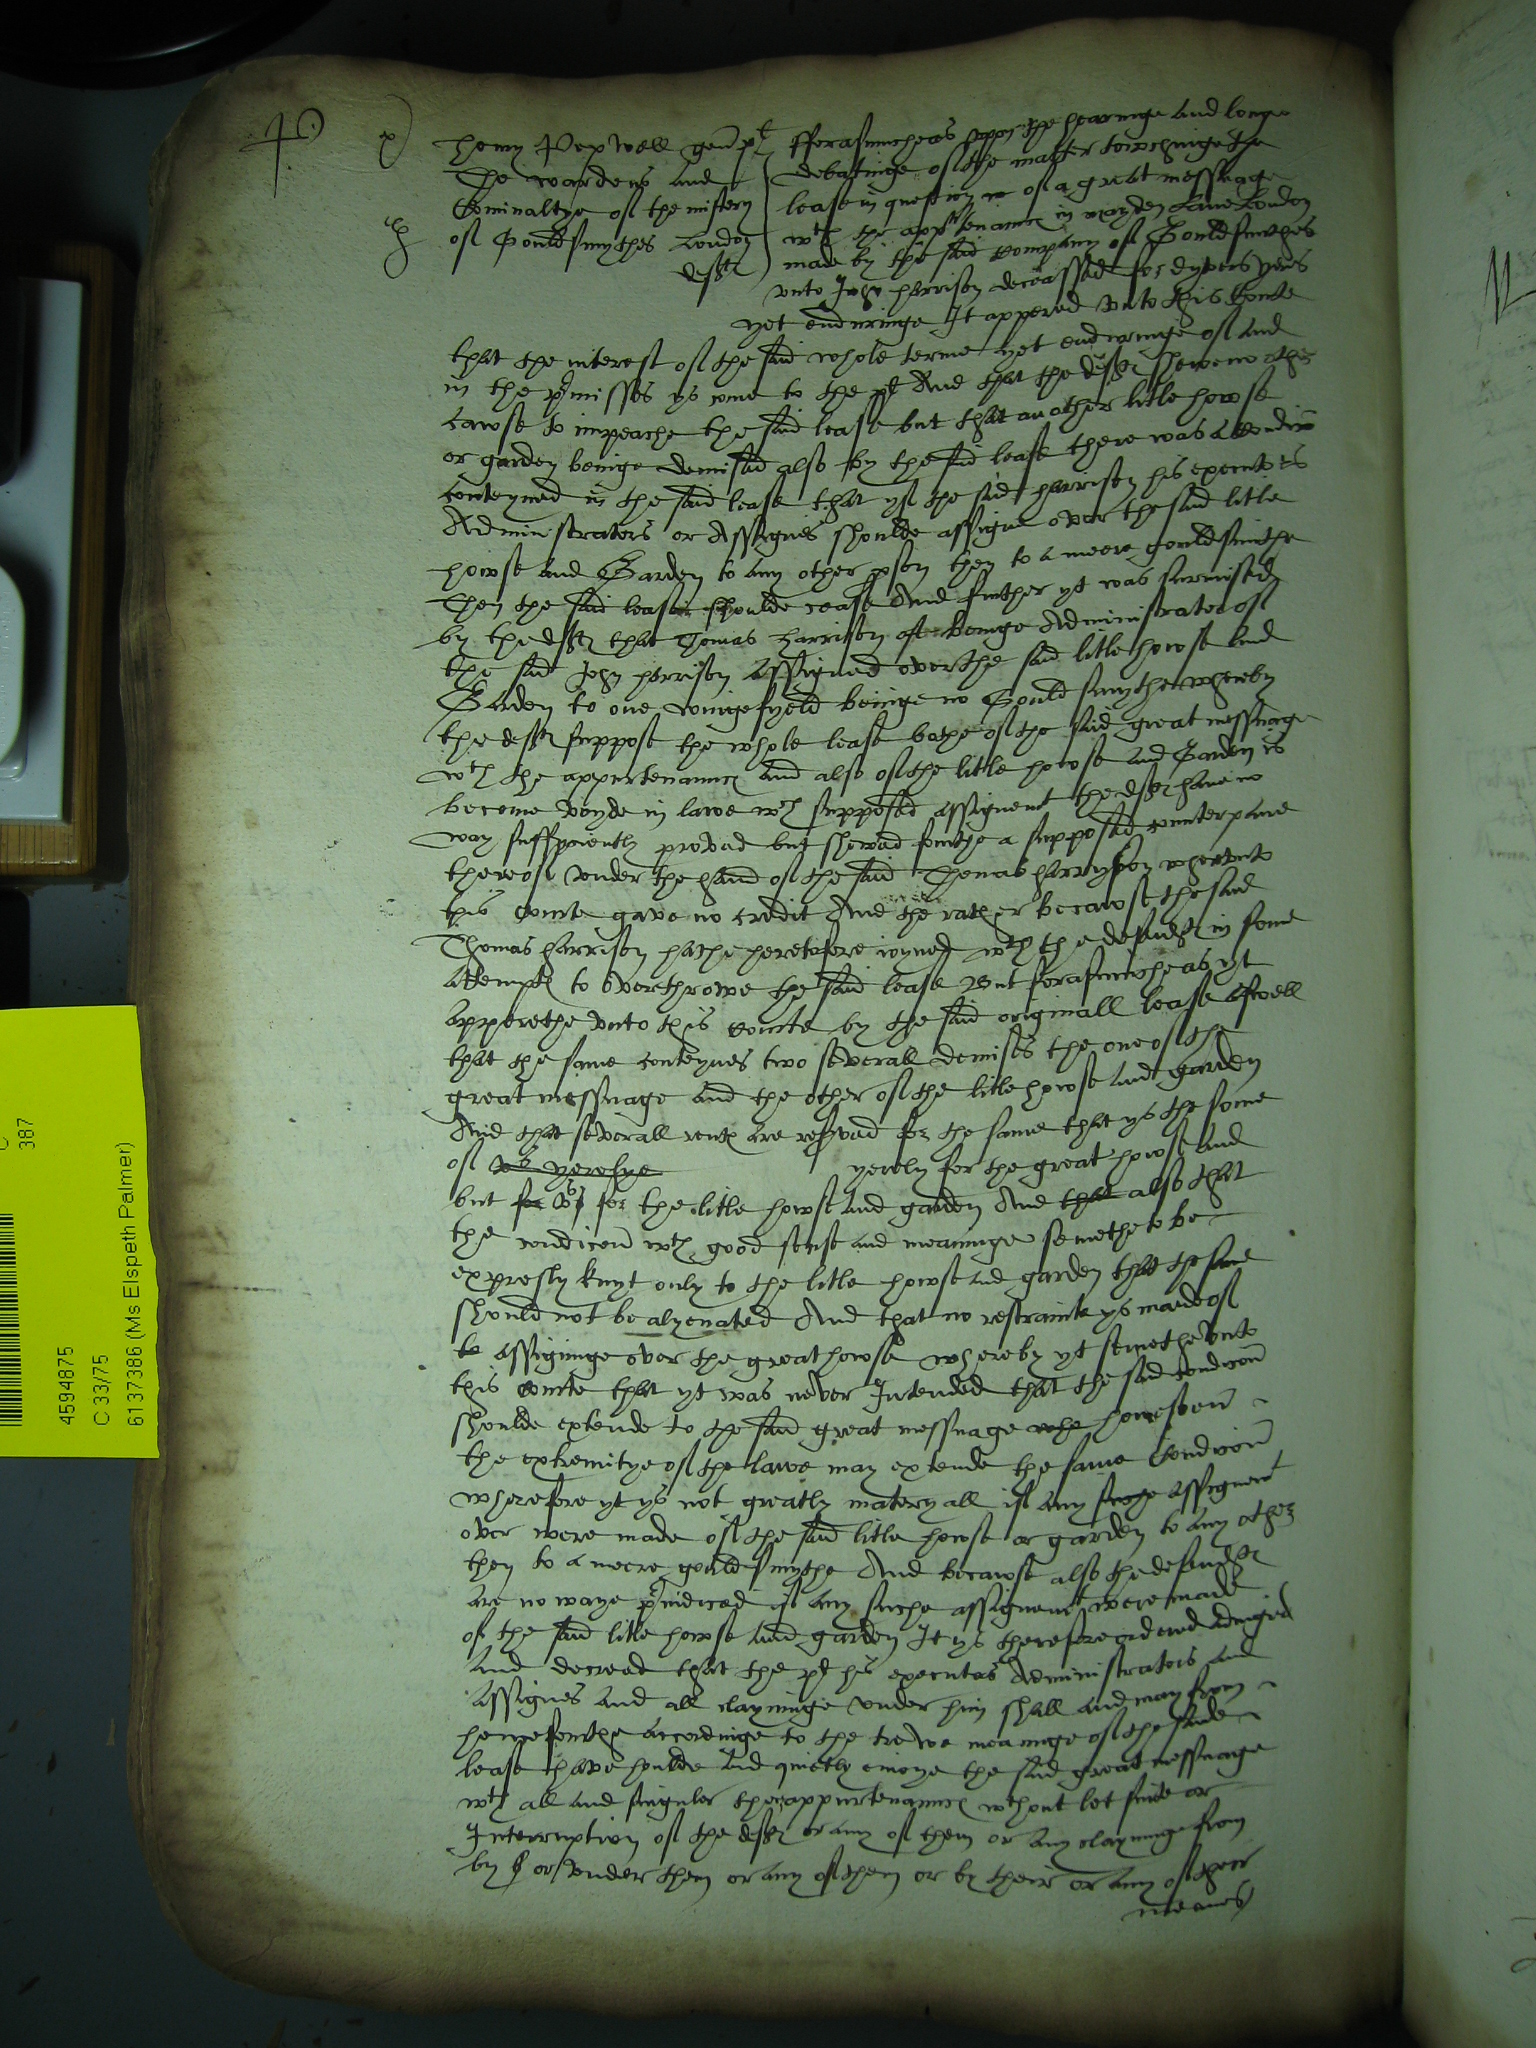 P
Henry Popwell gent pl
The wardens and
Cominaltye of the mistery
of Gouldsmythes London
deftes
fforasmuche as uppon the hearinge and longe
debatinge of the matter towchinge the
lease in question of a great messuage
wth the apptenances in mayden Lane London
made by the said company of Gouldsmithes
unto John Harrison deceassed for dyvers yeres
yet enduringe It appered unto this Courte
that the interest of the said whole terme yet enduringe of and
in the pmisses ys come to the pl And that the deftes shewe no other
cawse to impeache the said lease but that an other litle howse
or garden beinge demised also by the said lease there was a condicion
conteyned in the said lease that yf the said Harrison his executors
Administrators or Assignes shoulde assigne over the said litle
howse and Garden to any other pson then to a meere gouldsmithe
Then the said lease shoulde cease And further yt was surmised
by the deftes that Thomas Harrison beinge Administrator of
the said John Harrison assigned over the said litle howse and
Garden to one wingefyeld beinge no Gouldsmythe whereby
the deftes suppose the whole lease bothe of the said great messuage
wth the appurtenances and also of the litle howse and Garden is
become voyde in lawe wch supposed assignemt the deftes have no
way suffyciently proved but shewed fourthe a supposed counterpane
thereof under the hand of the said Thomas Harryson wherunto
this Courte gave no credit And the rather because the said
Thomas Harrison hathe heretofore ioyned wth the defendtes in some
attemptes to overthrowe the said lease But forasmuche as yt
apperethe unto this courte by the said originall lease aswell
that the same conteynes two severall demises the one of the
great messuage and the other of the litle howse and garden
And that severall rentes are reserved for the same that ys the some
of yerely for the great howse and
but for the litle howse and garden And also that
the condicion wth good sense and meaninge semethe to be
expresly knyt only to the litle howse and garden that the same
should not be alyenated And that no restrainte ys made of
the assigninge over the great howse whereby yt semethe unto
this courte that yt was never Intended that the said condicion
shoulde extende to the said great messuage howsoever
the extremitye of the lawe may extende the same Condicion
wherefore yt ys not greatly materyall if any suche assignemt
over were made of the said litle howse or garden to any other
then to a meere gouldsmythe And because also the defendtes
are no waye preiudiced if any suche assignement were made
of the said litle howse and garden It ys therefore ordered adiuged
and decreed that the pl his executors Administrators and
Assignes and all clayminge under him shall and may from
hencefourthe accordinge to the trewe meaninge of the said
lease have houlde and quietly enioye the said great messuage
wth all and singuler the appurtenances wthout let suite or
Interruption of the deftes or any of them or any clayminge from
by or under them or any of them or by their or any of their
meanes
387
4594875
C 33/75
6137386 (Ms Elspeth Palmer)